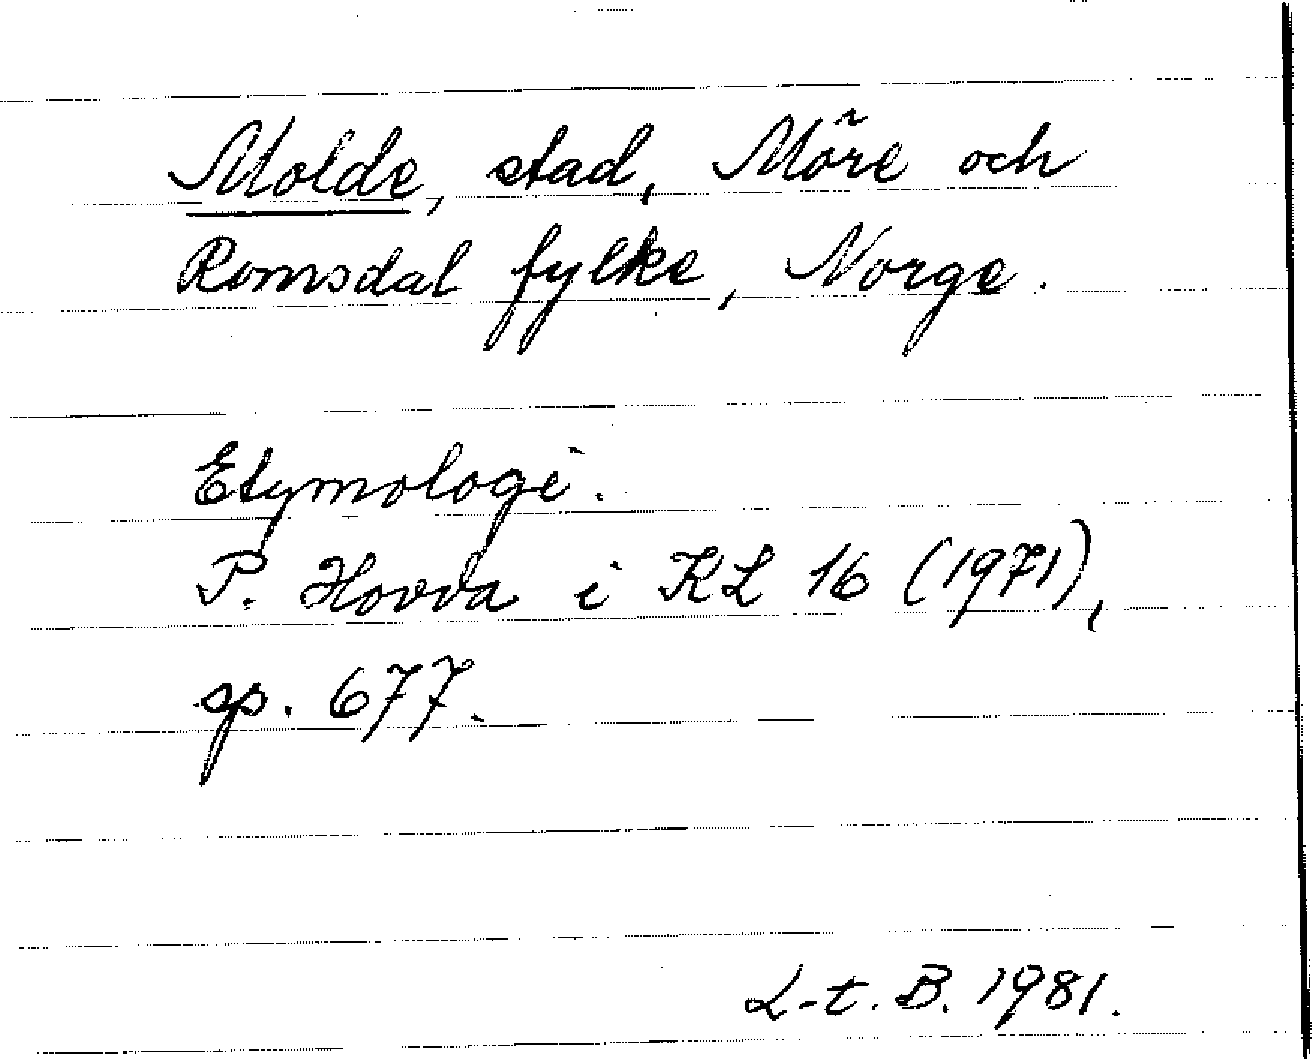 Molde, stad, Möre och
Romsdal fylke, Norge.
Etymologi.
P. Hovda i KL 16 (1971),
sp. 677.
L-t. B. 1981.